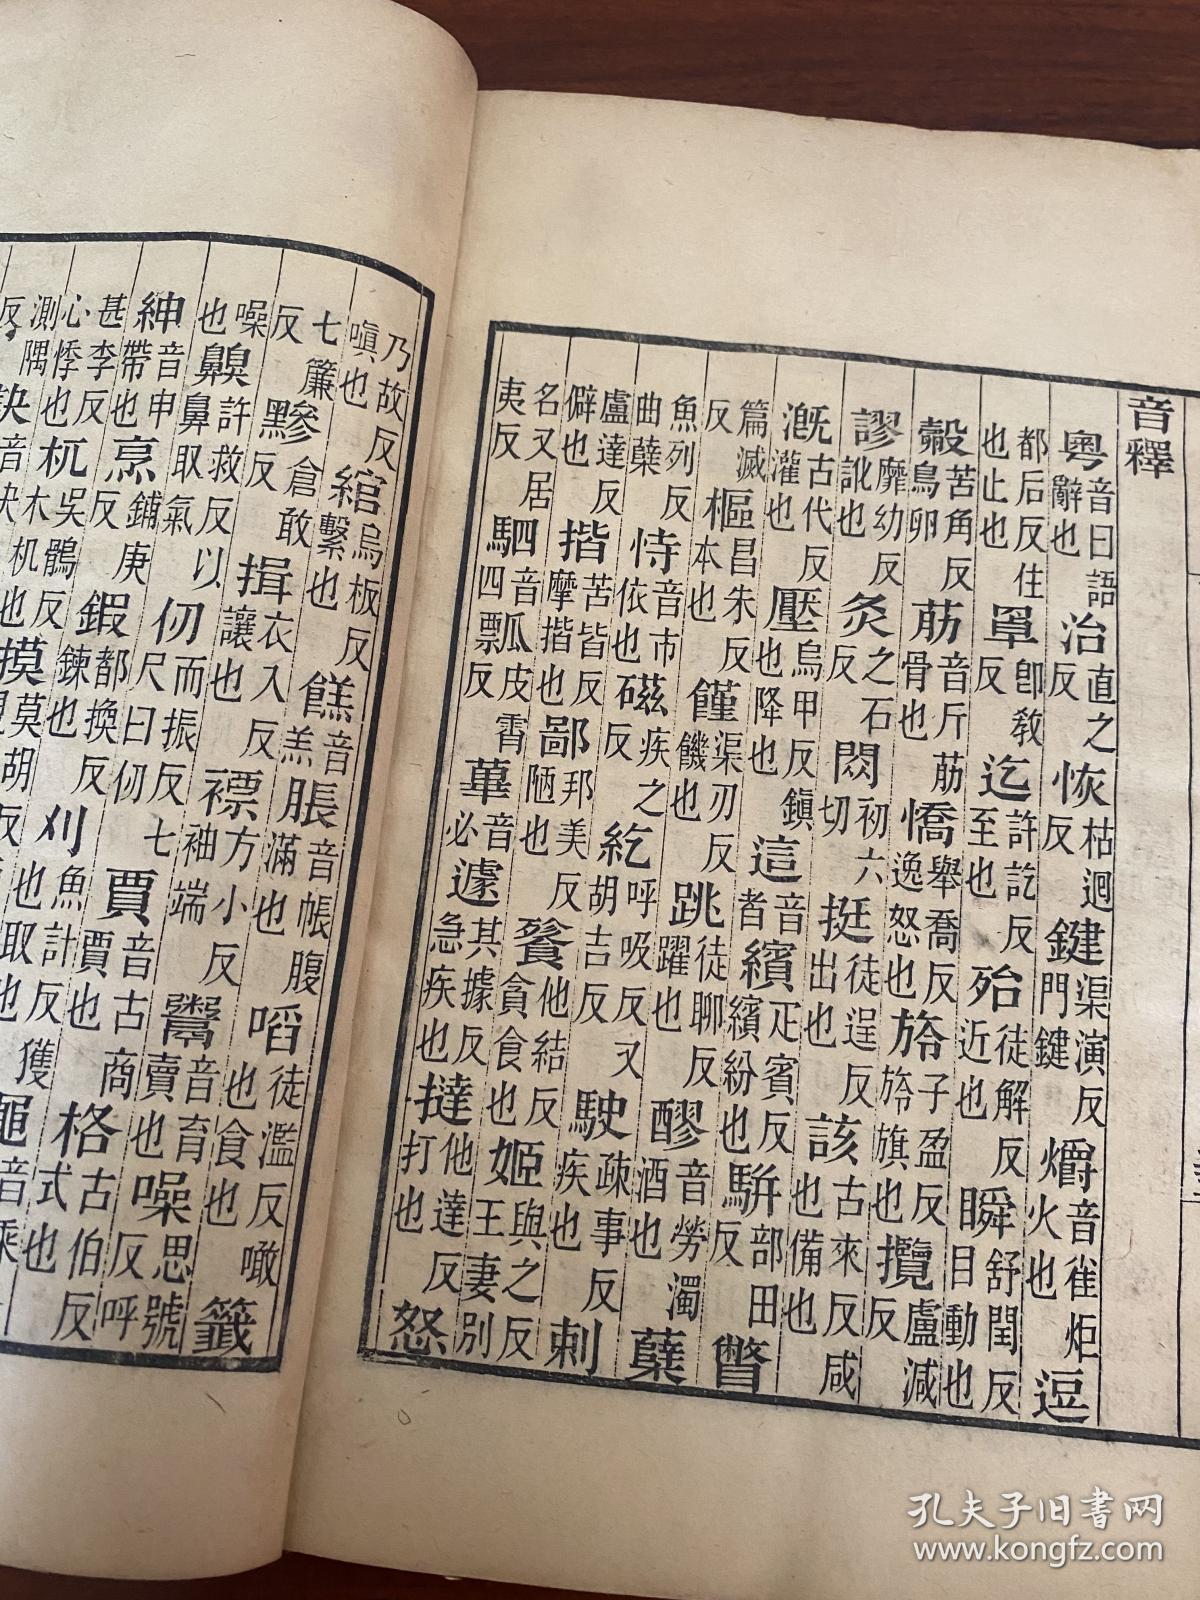 音釋
粵音曰語辭也 治直之反 恢枯迴反 鍵渠演反門鍵 爝音雀炬火也 逗
都后反住也止也 罩卽敎反 迄許訖反至也 殆徒解反近也 瞬舒閏反目動也
㲉苦角反鳥卵 筋音斤筋骨也 憍舉喬反逸怒也 旍子盈反旍旗也 攬盧減反
謬靡幼反訛也 灸之石反 閦初六切 挺徒逞反出也 該古來反咸也備也
漑古代反灌也 壓烏甲反鎭也降也 這音者 繽疋賓反繽紛也 駢部田反 瞥
篇滅反 樞昌朱反本也 饉渠刃反饑也 跳徒聊反躍也 醪音勞濁酒也 蘖
魚列反曲蘖 恃音市依也 磁疾之反 紇呼吸反又胡吉反 駛疎事反疾也 刺
盧達反僻也 揩苦皆反摩揩也 鄙邦美反陋也 餮他結反貪食也 姬與之反王妻別
名又居夷反 駟音四 瓢皮霄反 蓽音必 遽其據反急疾也 撻他達反打也 怒
乃故反嗔也 綰烏板反繫也 餻音羔 脹音帳腹滿也 㗖徒濫反噉也食也 籤
七簾反 黲倉敢反 揖衣入反讓也 褾方小反袖端 鬻音育賣也 噪思號反呼
噪也 齅許救反以鼻取氣 仞而振反七尺曰仞 賈音古商賈也 格古伯反式也
紳音申帶也 烹鋪庚反 鍛都換反鍊也 刈魚計反獲也取也
甚李反心悸也 杌吳鶻反木杌也 摸莫胡反
測隅反 訣音決